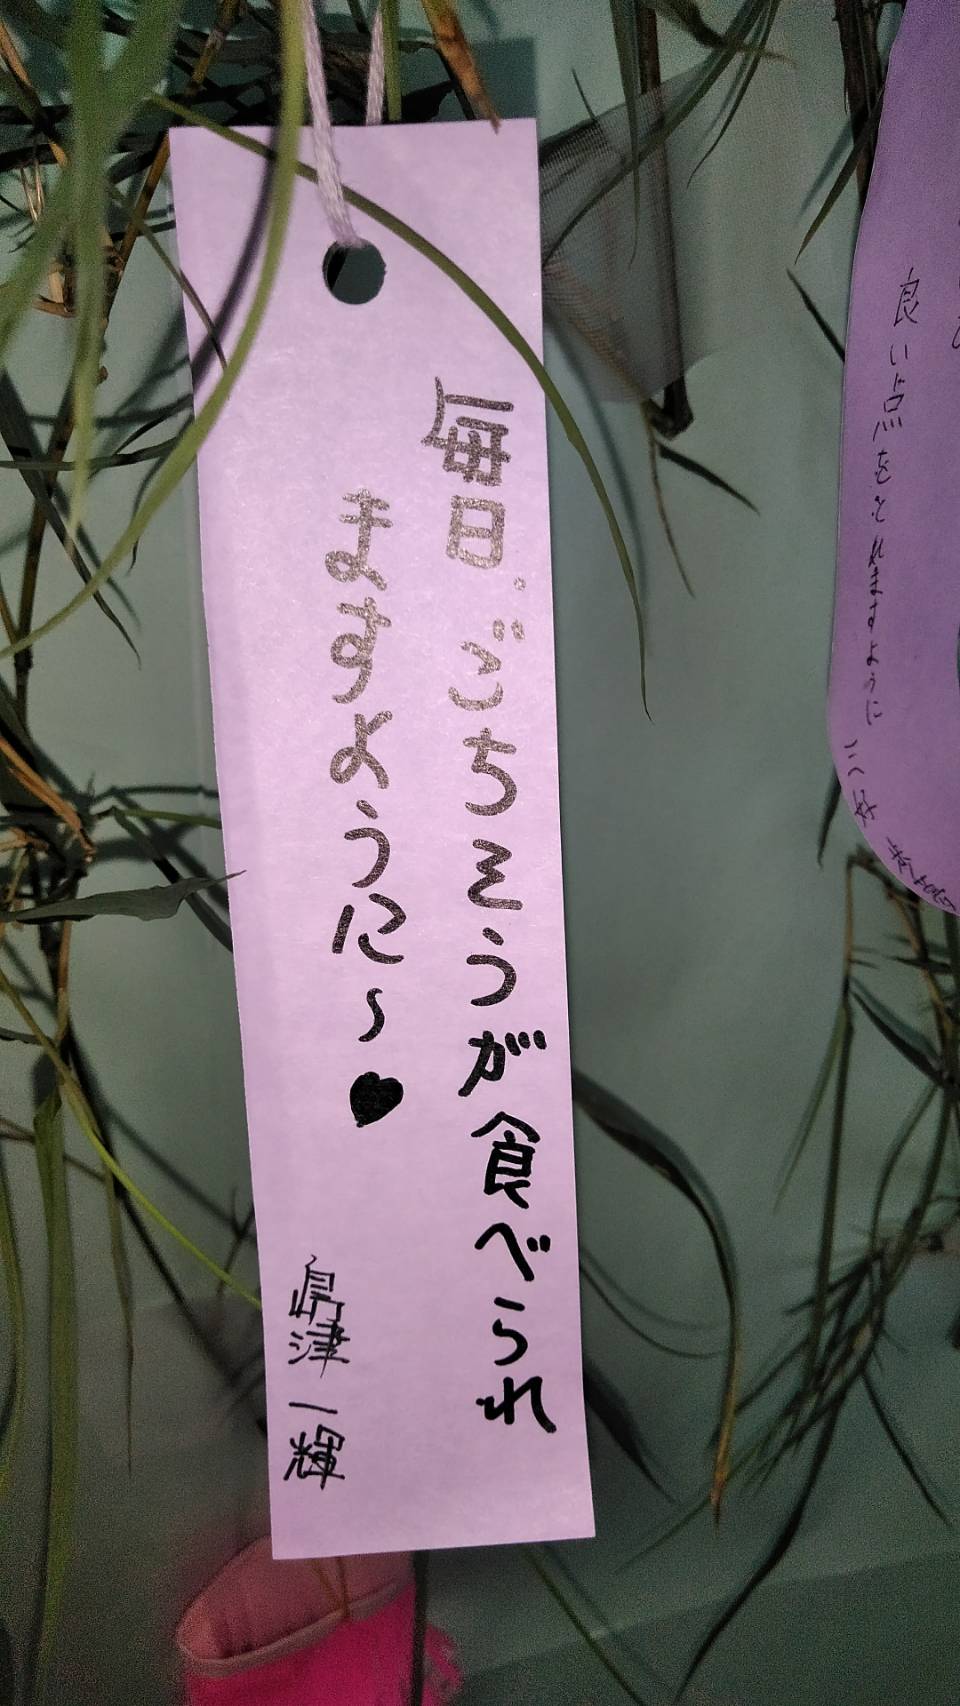 毎日。ごちそうが食べられ
ますように〜♥
島津一輝
良い点をとれますように